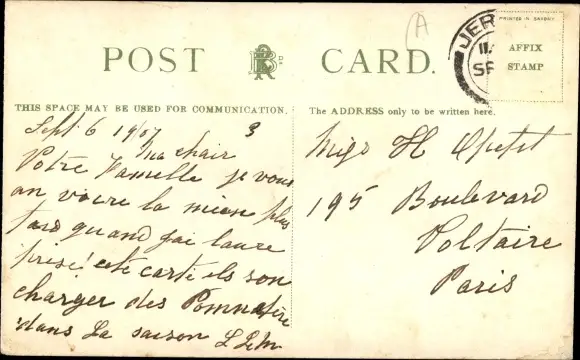 POST CARD.
PRINTED IN SAXONY
AFFIX
STAMP
JER
SE
THIS SPACE MAY BE USED FOR COMMUNICATION.
The ADDRESS only to be written here.
Sept 6 1907
3
ma chair
Votre Famelle je vous
an voire la mien plus
tard quand j'ai
cete carte ils son
charger des Pomme
dans La saison
Miss H
195 Boulevard
Voltaire
Paris
A